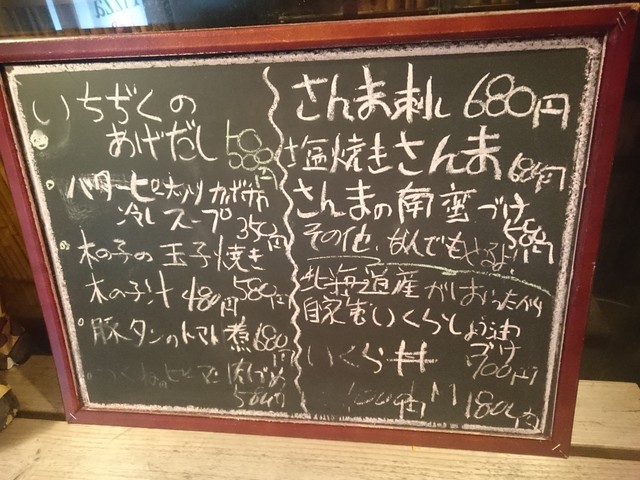 いちぢくの
あげだし
バターピーナッツカボチャ
冷しスープ 350円
木の子の玉子焼き
580円
木の子汁 480円
豚タンのトマト煮 680円
580円
さんま刺し 680円
塩焼きさんま 680円
さんまの南蛮づけ
580円
その他、なんでもやるよ!!
北海道産が
自家製いくらしょう油
づけ
700円
いくら丼